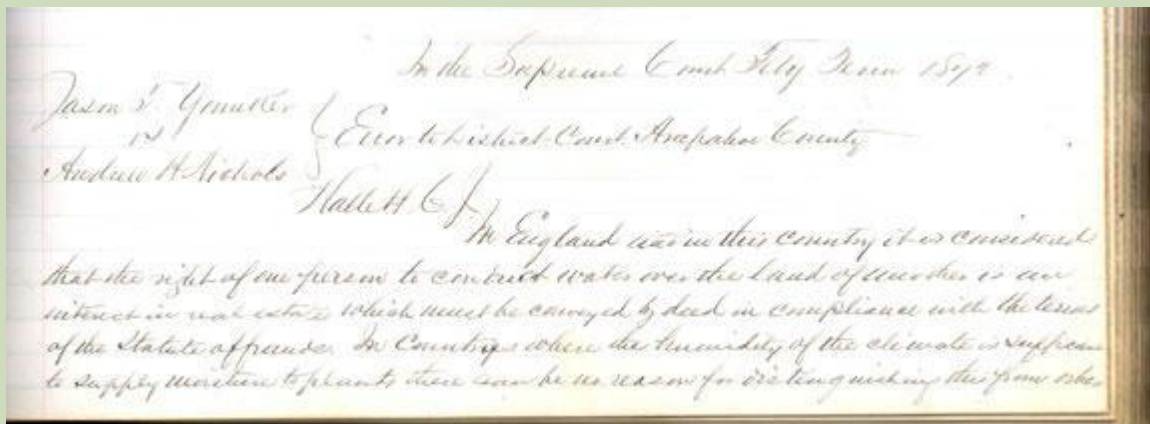 In the Supreme Court Feby Term 1872
Jason T. Younker
vs
Andrew H Nichols
Error to District Court Arapahoe County
Hallett C. J.
In England and in this country it is considered
that the right of one person to conduct water over the land of another is an
interest in real estate which must be conveyed by deed in compliance with the terms
of the Statute of frauds. In Countrys where the humidity of the climate is
to supply moisture to plants there can be no reason for distinguishing this from